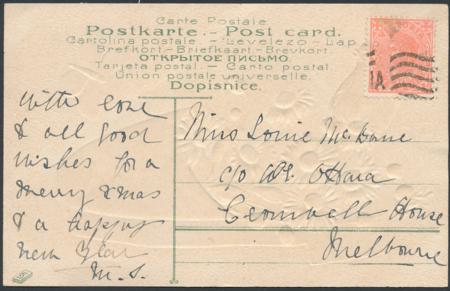 Carte Postale.
Postkarte. - Post card.
Cartolina postale - Levelezo-Lap
Brefkort - Briefkaart - Brevkort.
ОТКРЫТОЕ ПИСЬМО.
Tarjeta postal - Carto postal.
Union postale universelle.
Dopisnice.
With love
& all good
wishes for a
merry Xmas
& a happy
new Year
M. S.
Miss
c/o O'Hara
Cromwell House
Melbourne